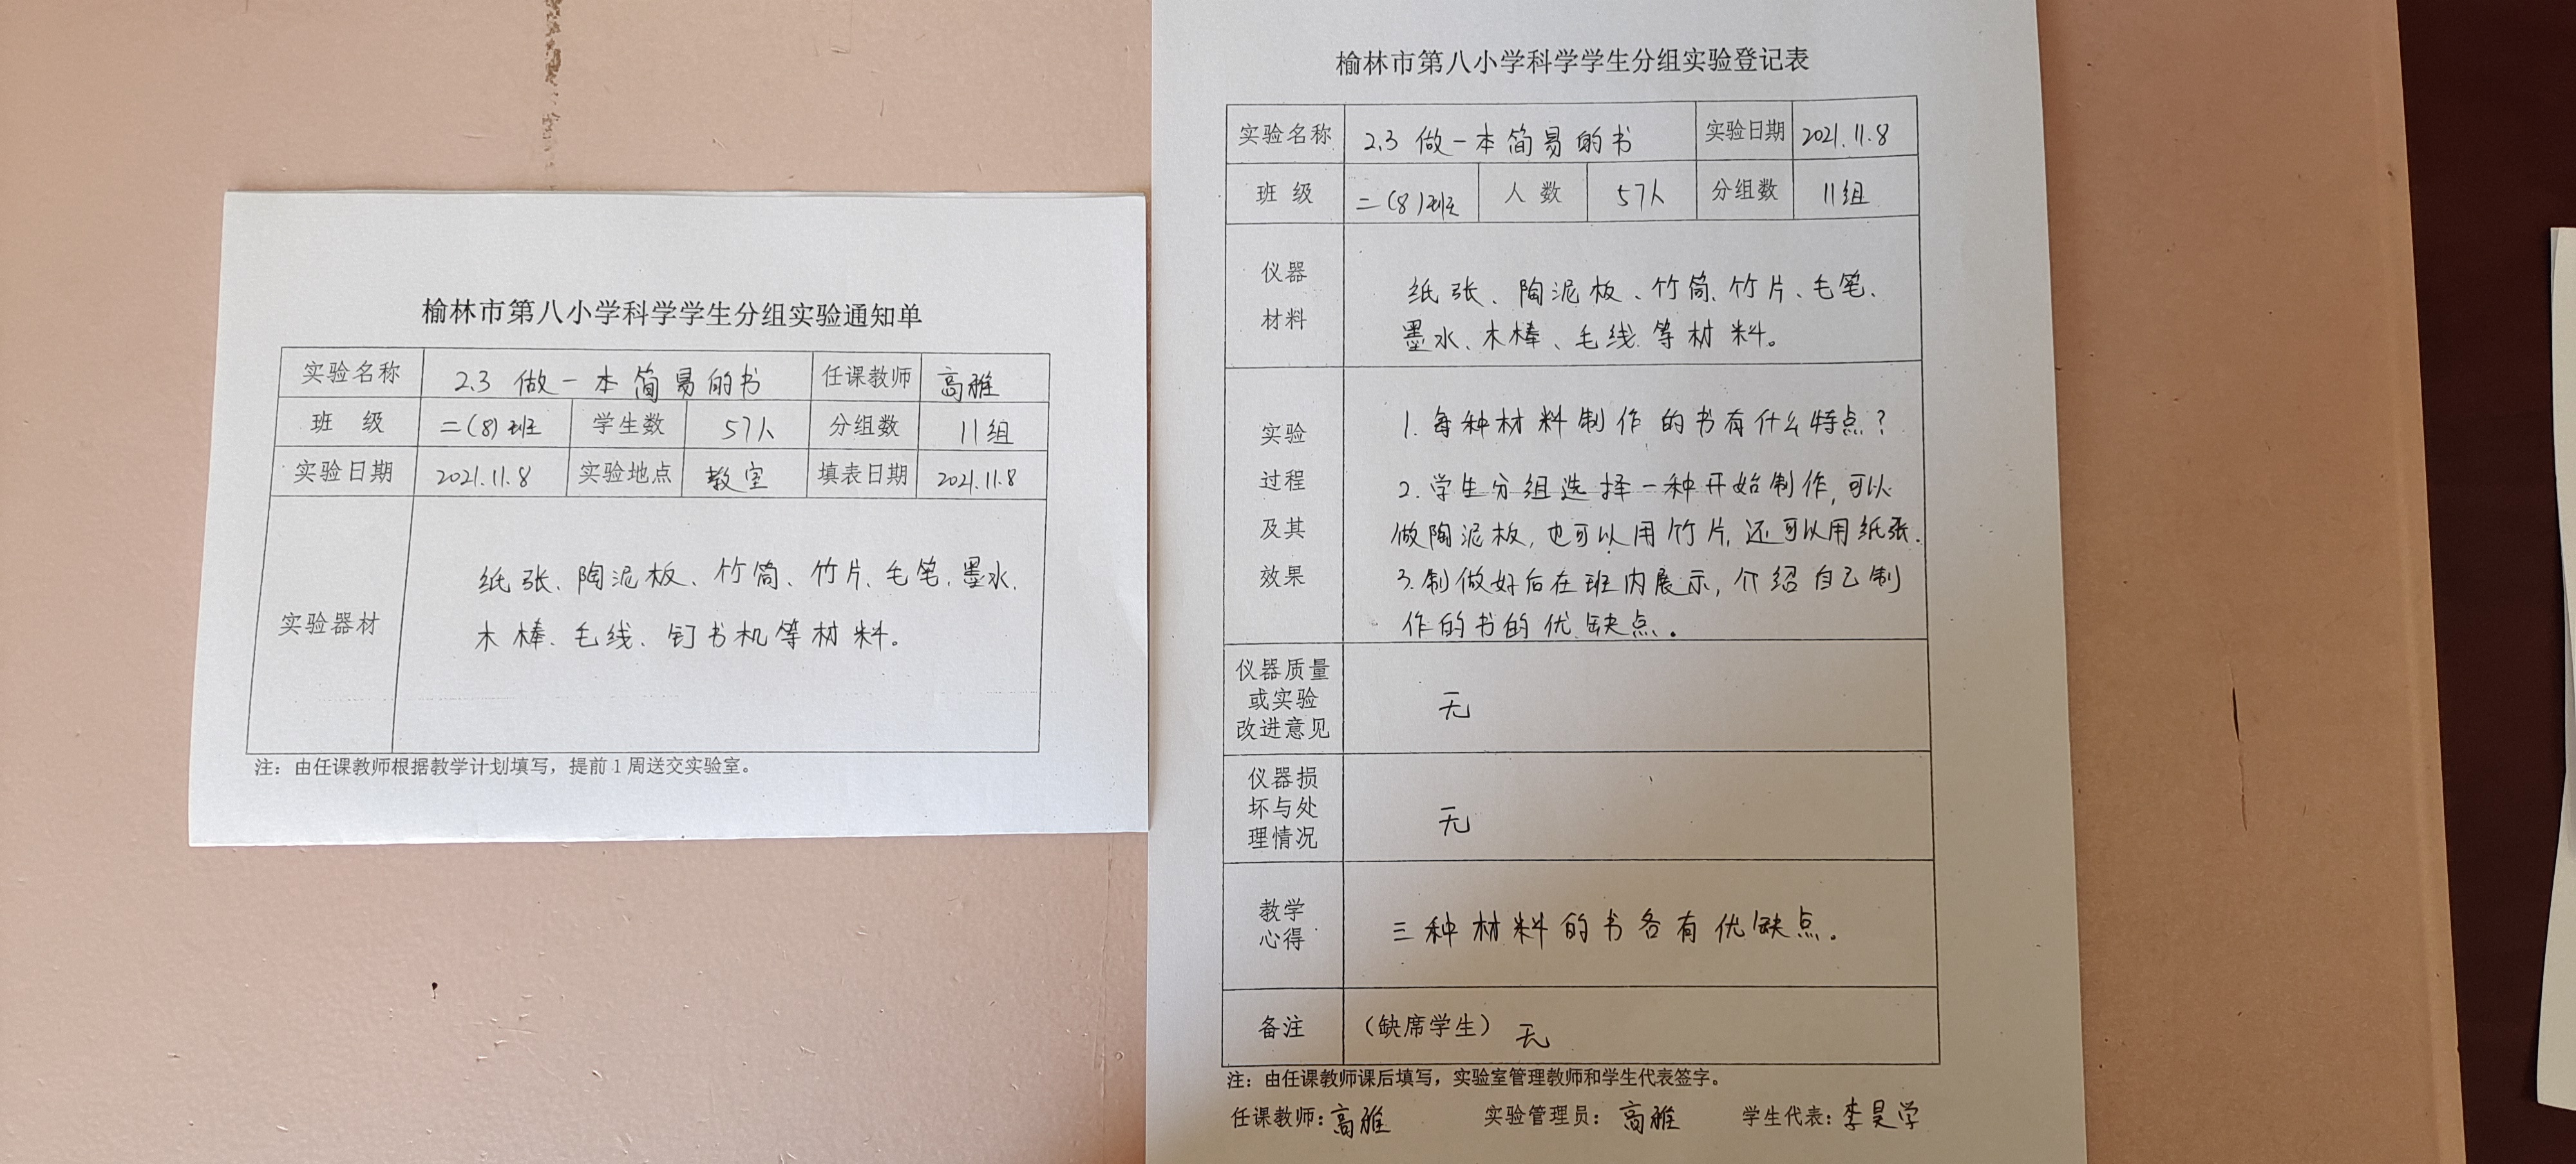 榆林市第八小学科学学生分组实验通知单
实验名称 2.3 做一本简易的书 任课教师 高雅
班 级 二(8)班 学生数 57人 分组数 11组
实验日期 2021.11.8 实验地点 教室 填表日期 2021.11.8
实验器材
纸张、陶泥板、竹筒、竹片、毛笔、墨水、
木棒、毛线、钉书机等材料。
注：由任课教师根据教学计划填写，提前1周送交实验室。
榆林市第八小学科学学生分组实验登记表
实验名称 2.3 做一本简易的书 实验日期 2021.11.8
班 级 二(8)班 人 数 57人 分组数 11组
仪器
材料
纸张、陶泥板、竹筒、竹片、毛笔、
墨水、木棒、毛线等材料。
实验
过程
及其
效果
1.每种材料制作的书有什么特点？
2.学生分组选择一种开始制作,可以
做陶泥板,也可以用竹片,还可以用纸张.
3.制做好后在班内展示,介绍自己制
作的书的优缺点。
仪器质量
或实验
改进意见
无
仪器损
坏与处
理情况
无
教学
心得
三种材料的书各有优缺点。
备注 （缺席学生） 无
注：由任课教师课后填写，实验室管理教师和学生代表签字。
任课教师：高雅 实验管理员：高雅 学生代表：李昊学